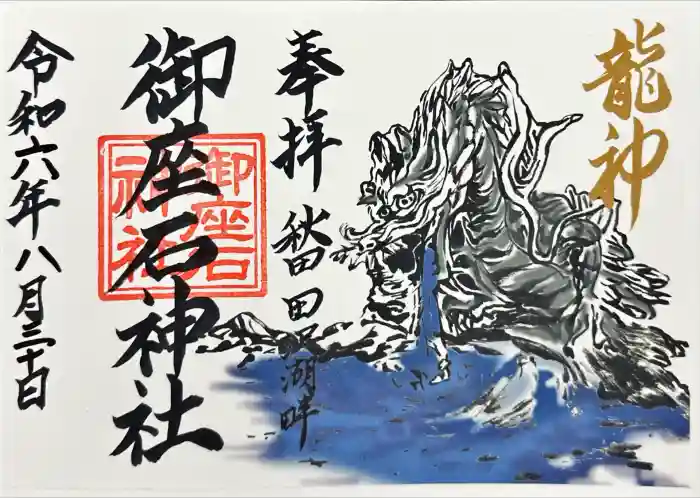 龍神
奉拝
秋田田沢湖畔
御座石神社
御座石
神社
令和六年八月三十日